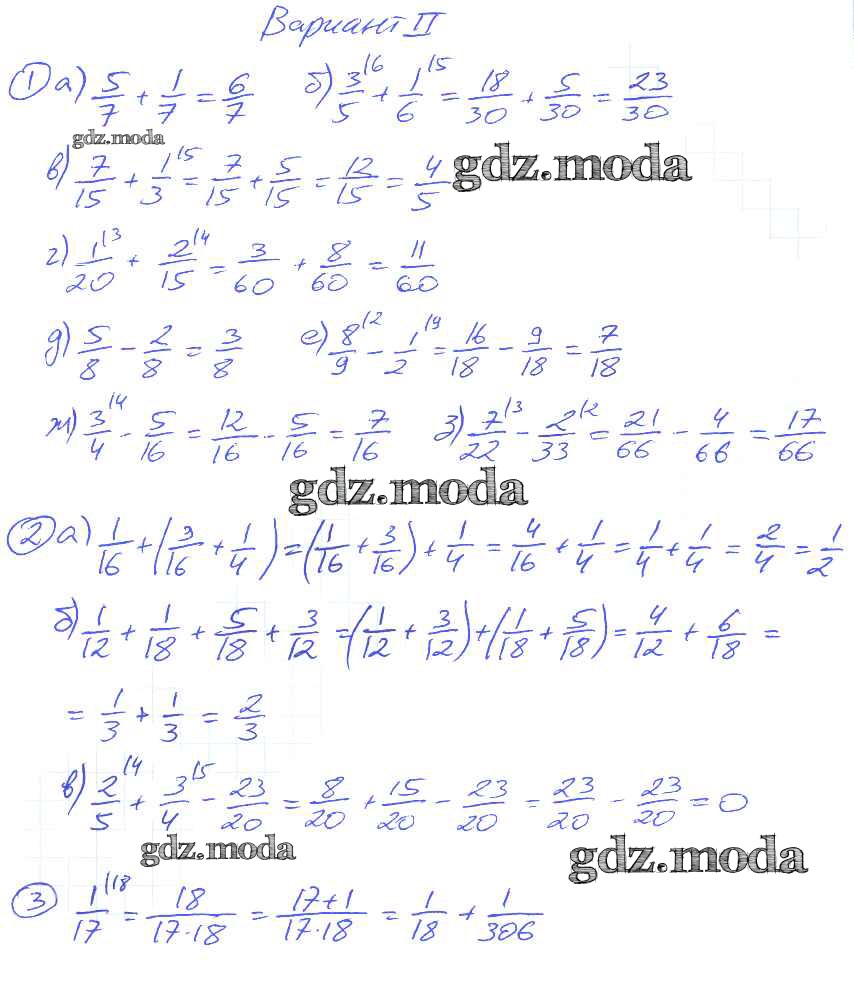 Вариант II
① а) 5/7 + 1/7 = 6/7 б) 3/5 \6 + 1/6 \5 = 18/30 + 5/30 = 23/30
gdz.moda
в) 7/15 + 1/3 \5 = 7/15 + 5/15 = 12/15 = 4/5 gdz.moda
г) 1/20 \3 + 2/15 \4 = 3/60 + 8/60 = 11/60
д) 5/8 - 2/8 = 3/8 е) 8/9 \2 - 1/2 \9 = 16/18 - 9/18 = 7/18
ж) 3/4 \4 - 5/16 = 12/16 - 5/16 = 7/16 з) 7/22 \3 - 2/33 \2 = 21/66 - 4/66 = 17/66
gdz.moda
② а) 1/16 + (3/16 + 1/4) = (1/16 + 3/16) + 1/4 = 4/16 + 1/4 = 1/4 + 1/4 = 2/4 = 1/2
б) 1/12 + 1/18 + 5/18 + 3/12 = (1/12 + 3/12) + (1/18 + 5/18) = 4/12 + 6/18 =
= 1/3 + 1/3 = 2/3
в) 2/5 \4 + 3/4 \5 - 23/20 = 8/20 + 15/20 - 23/20 = 23/20 - 23/20 = 0
gdz.moda gdz.moda
③ 1/17 \18 = 18/17·18 = 17+1/17·18 = 1/18 + 1/306